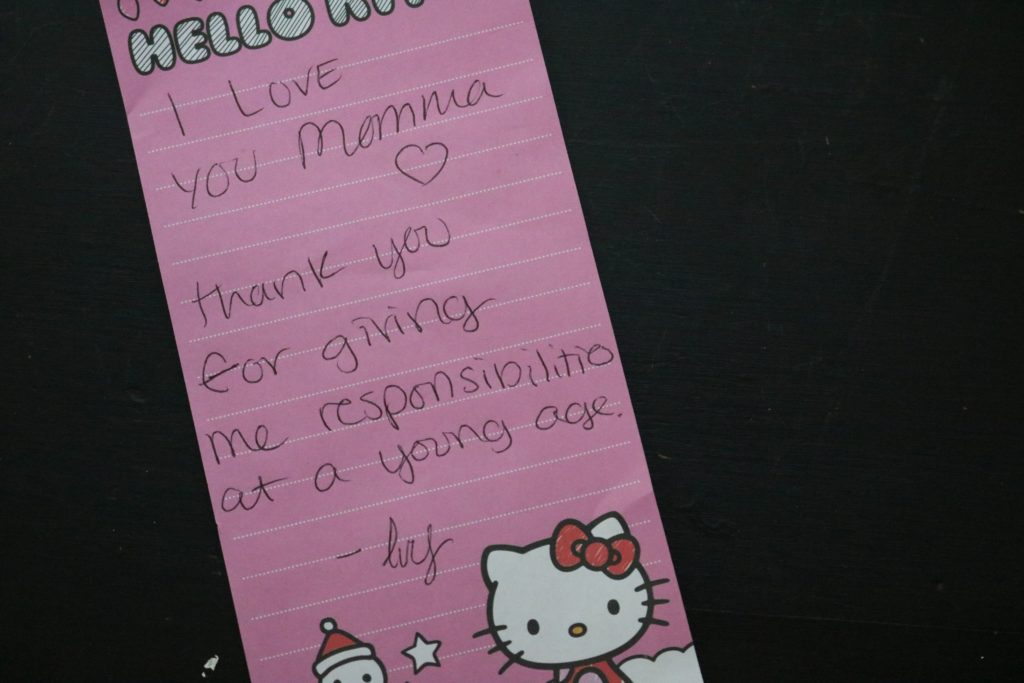 HELLO KIT
I LOVE
you Momma
thank you
for giving
me responsibilitie
at a young age.
- Ivy